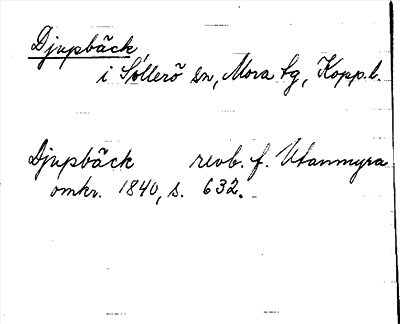 Djupbäck,
i Sollerö sn, Mora tg, Kopp. l.
Djupbäck revb. f. Utanmyra
omkr. 1840, s. 632.